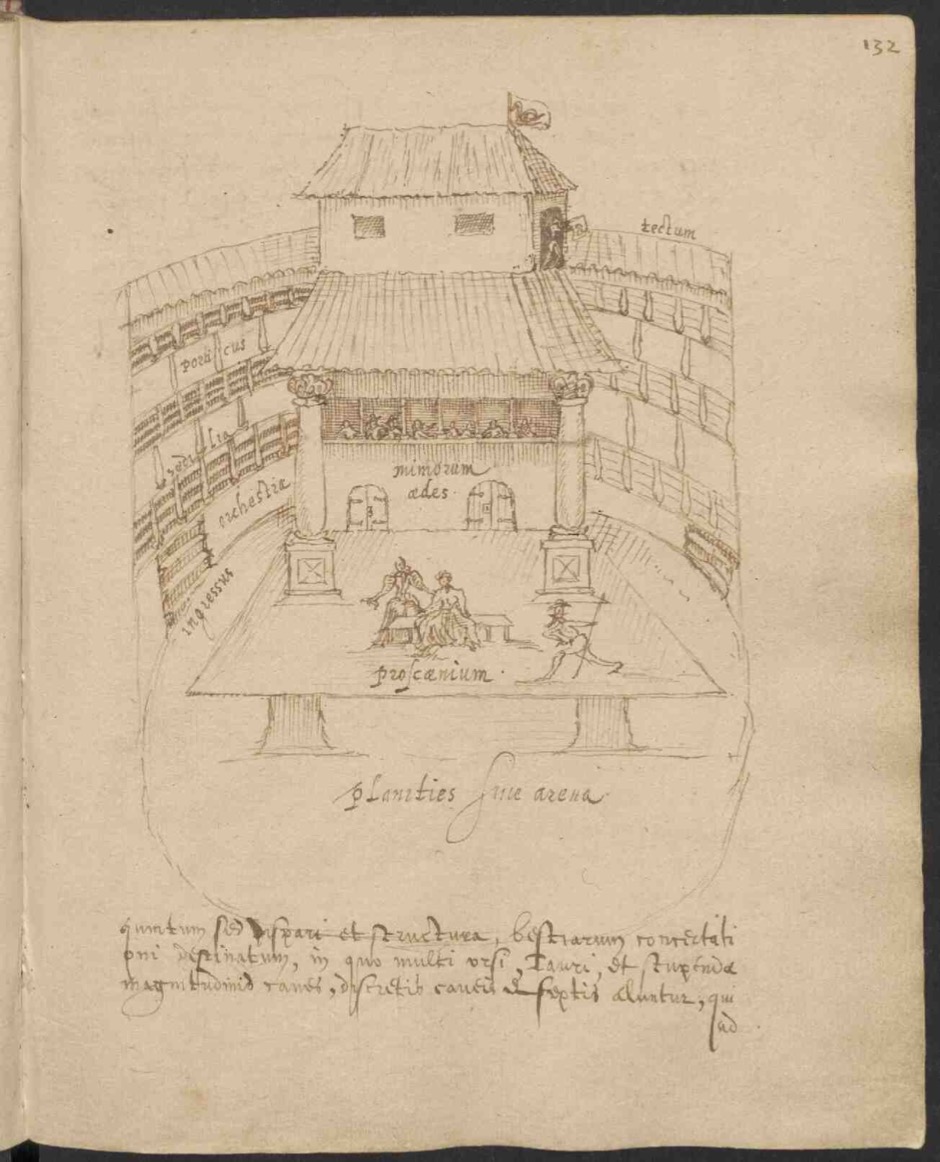 132
tectum
porticus
sedilia
orchestra
mimorum
ædes.
ingressus
proscænium.
planities siue arena.
quintum sed dispari et structura, bestiarum concertati
oni destinatum, in quo multi vrsi, Tauri, et stupendæ
magnitudinis canes, discretis caueis et septis aluntur, qui
ad